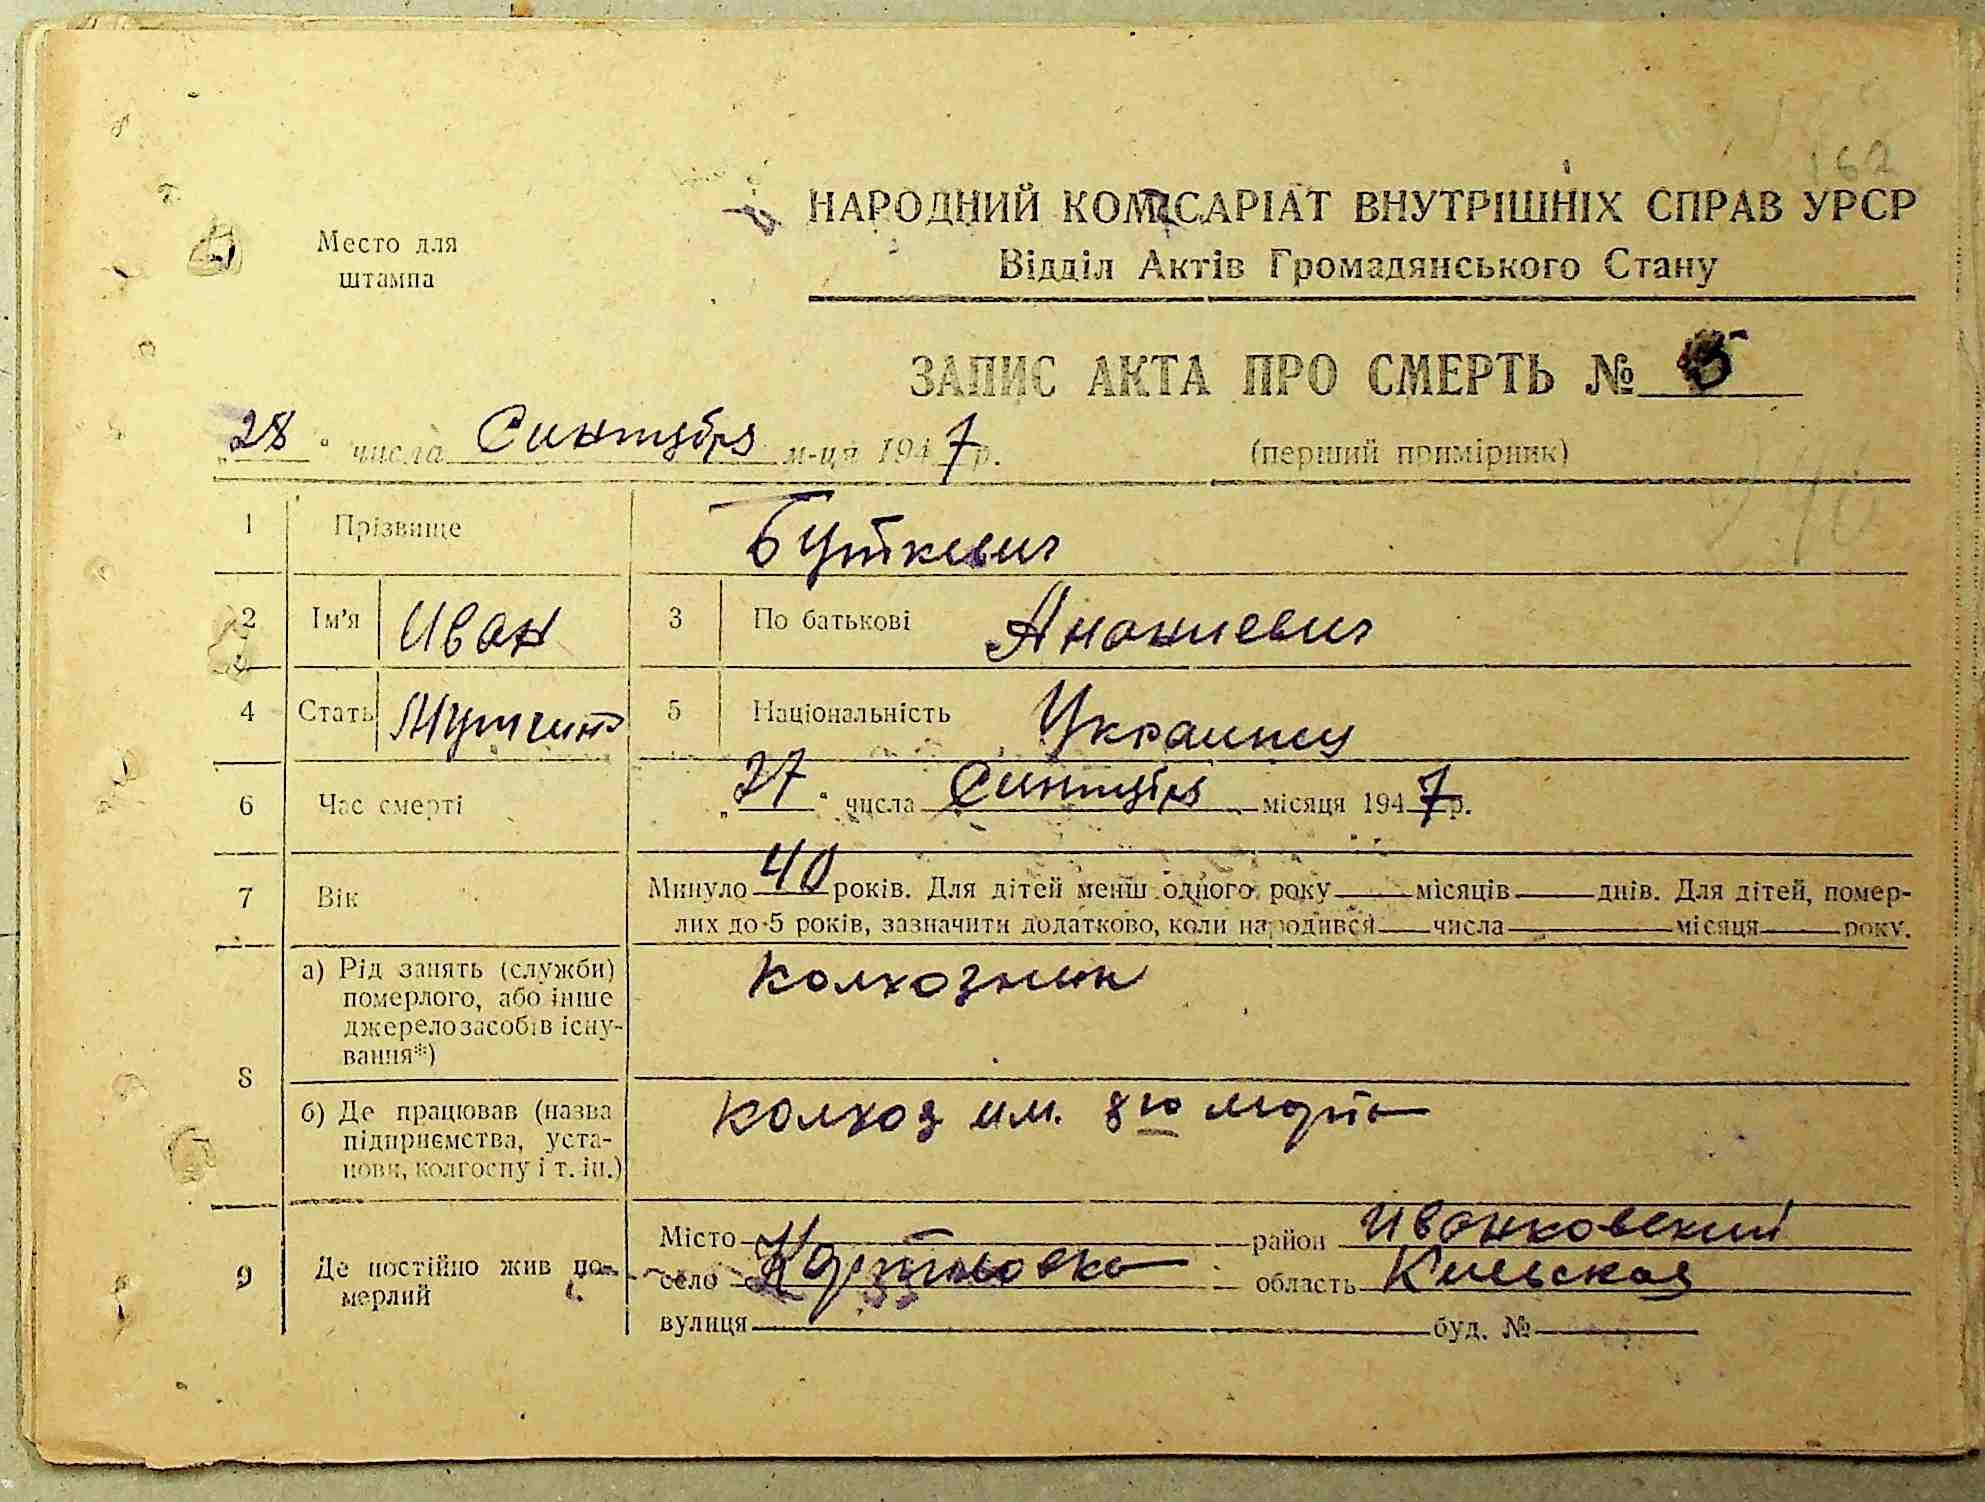 162
НАРОДНИЙ КОМІСАРІАТ ВНУТРІШНІХ СПРАВ УРСР
Место для
штампа
Відділ Актів Громадянського Стану
ЗАПИС АКТА ПРО СМЕРТЬ № 5
„28“ числа Синтября м-ця 1947 р.
(перший примірник)
1 Прізвище Буткевич
2 Ім'я Иван 3 По батькові Ананиевич
4 Стать 5 Національність Украинец
6 Час смерті „27“ числа Синтября місяця 1947 р.
7 Вік Минуло 40 років. Для дітей менш одного року місяців днів. Для дітей, помер-
лих до 5 років, зазначити додатково, коли народився числа місяця року.
8 а) Рід занять (служби)
померлого, або інше
джерело засобів існу-
вання*)
колхозник
б) Де працював (назва
підприємства, уста-
нови, колгоспу і т. ін.)
колхоз им. 8го марта
9 Де постійно жив по-
мерлий
Місто район Иванковский
село область Киевская
вулиця буд. №